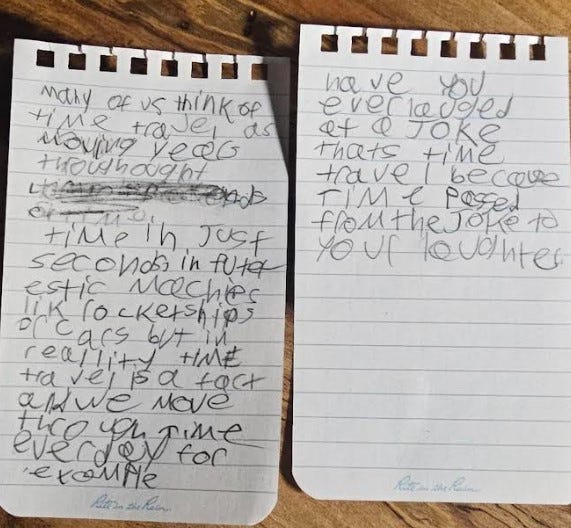 many of us think of
time travel as
moving years
throuhought
time in just
seconds in futer
estic machies
lik rocketships
or cars but in
reallity time
travel is a fact
and we move
throuyh time
everday for
example
Rite in the Rain
have you
ever lauged
at a JOKE
thats time
travel because
time passed
from the JOKE to
your laughter
Rite in the Rain